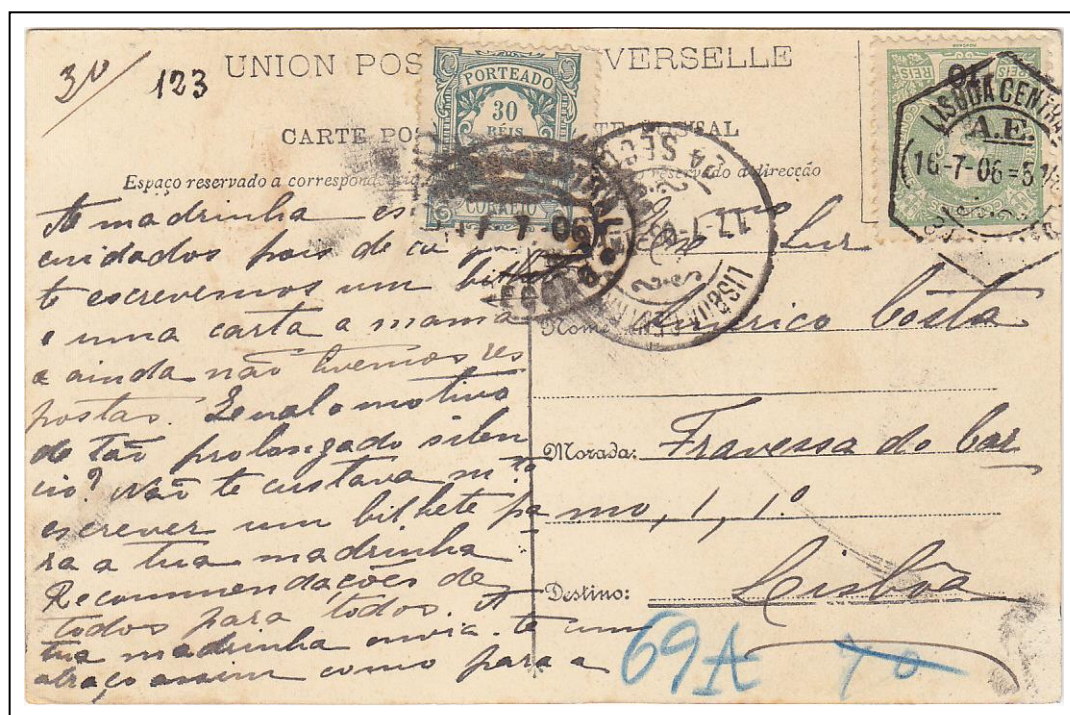 30/
123
UNION POS VERSELLE
CARTE POS TE POSTAL
Espaço reservado a correspond
reservado á direcção
PORTEADO
30
RÉIS
CORREIO
REIS
REIS
LISBOA CENTRAL
A.E.
16-7-06=5
24 SECÇ
17-7-
LISBOA CENTRAL
A madrinha es
cuidados pois de ca
te escrevemos um bilh
e uma carta a mamã
e ainda não tivemos res
postas. Qual o motivo
de tão prolongado silen
cio? Não te custava m.to
escrever um bilhete pa
ra a tua madrinha.
Recommendações de
todos para todos. A
tua madrinha envia-te um
abraço assim como para a
Snr
Nome: Americo Costa
Morada: Travessa do Car
mo, 1, 1.º
Destino: Lisbôa
69A